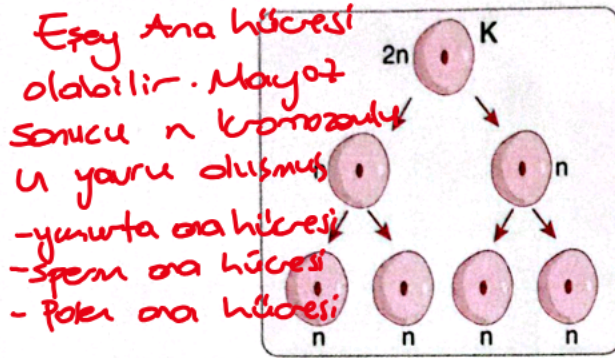 Eşey Ana hücresi
olabilir. Mayoz
sonucu n kromozomlu
4 yavru oluşmuş
-yumurta ana hücresi
-sperm ana hücresi
- Polen ana hücresi
K
2n
n
n n n n